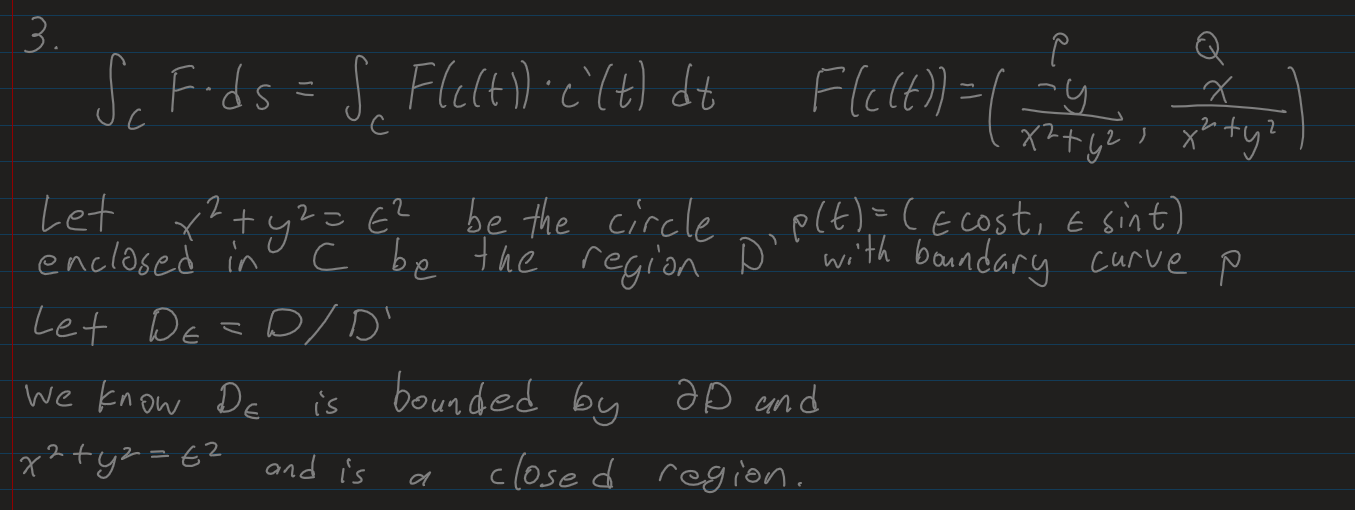 3.
∫_C F·ds = ∫_C F(c(t))·c'(t) dt F(c(t)) = ( -y/(x²+y²), x/(x²+y²) ) P Q
Let x²+y² = ϵ² be the circle p(t) = (ϵcost, ϵ sint)
enclosed in C be the region D' with boundary curve p
Let D_ϵ = D/D'
We know D_ϵ is bounded by ∂D and
x²+y² = ϵ² and is a closed region.